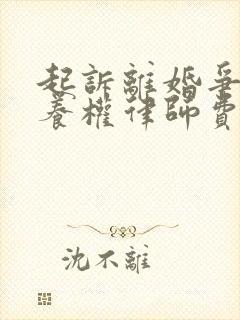 起訴離婚爭
養權律師費
沈不離